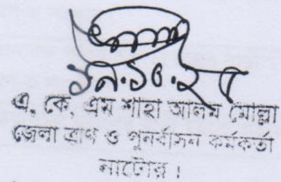 ১৯.১০.২০
এ, কে, এম শাহা আলম মোল্লা
জেলা ত্রাণ ও পুনর্বাসন কর্মকর্তা
নাটোর ।